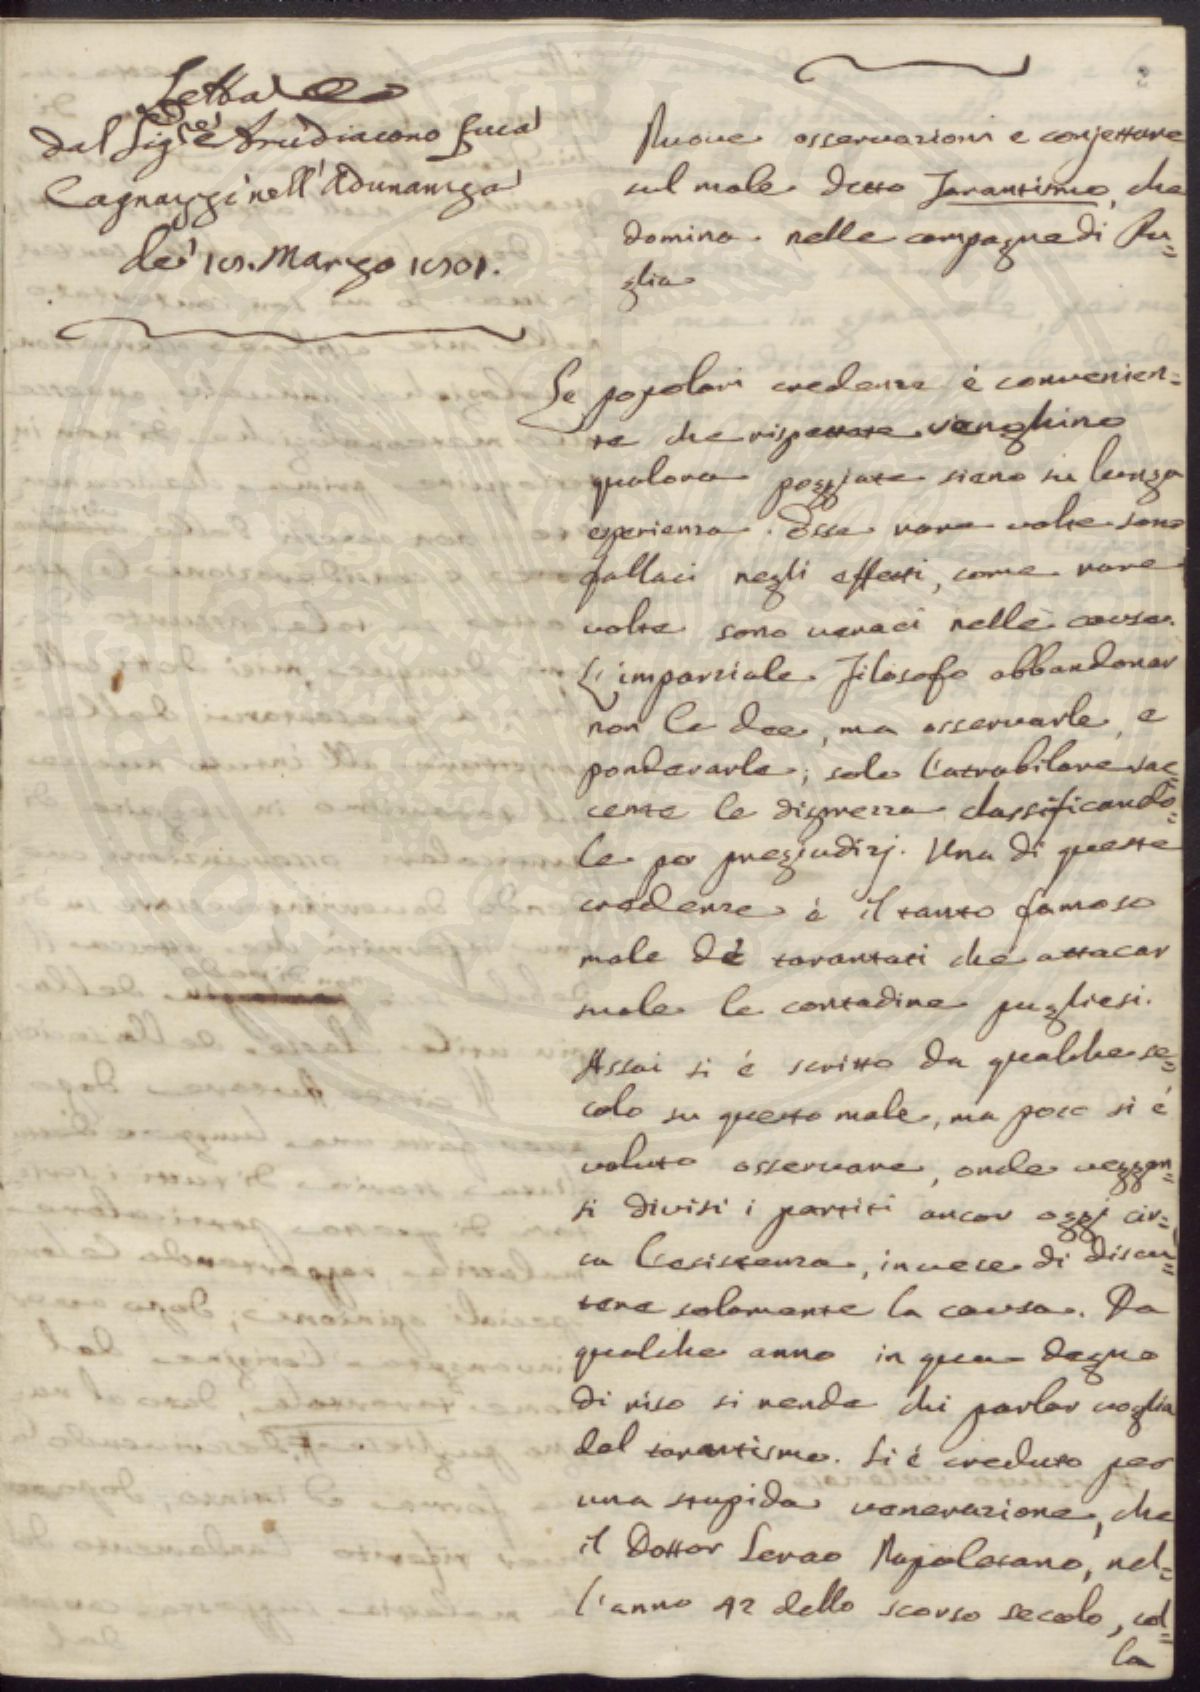 Letta
dal Sig.re Arcidiacono Luca
Cagnazzi nell'Adunanza
de' 15. Marzo
2
Nuove osservazioni e conjetture
sul male detto Tarantismo, che
domina nelle campagne di Pu=
glia
Le popolari credenze è convenien=
te che rispettate venghino
qualora poggiate siano su lunga
esperienza. Esse rare volte sono
fallaci negli effetti, come rare
volte sono veraci nelle cause.
L'imparziale Filosofo abbandonar
non le dee, ma osservarle, e
ponderarle; solo l'atrabilare sac=
cente le disprezza classificando=
le per pregiudizj. Una di queste
credenze è il tanto famoso
male de' tarantati che attacar
suole le contadine pugliesi.
Assai si è scritto da qualche se=
colo su questo male, ma poco si è
voluto osservare, onde veggon=
si divisi i partiti ancor oggi cir=
ca l'esistenza, invece di discu=
tere solamente la causa. Da
qualche anno in qua degno
di riso si rende chi parlar voglia
del tarantismo. Si è creduto per
una stupida venerazione, che
il Dottor Serao Napoletano, nel=
l'anno 42 dello scorso secolo, col=
la